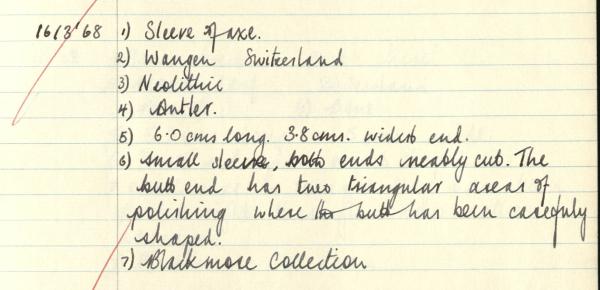 16/3/68 1) Sleeve of axe.
2) Wangen Switzerland
3) Neolithic
4) Antler.
5) 6.0 cms long. 3.8 cms. widest end.
6) Small sleeve, both ends neatly cut. The
butt end has two triangular areas of
polishing where the butt has been carefully
shaped.
7) Blackmore Collection